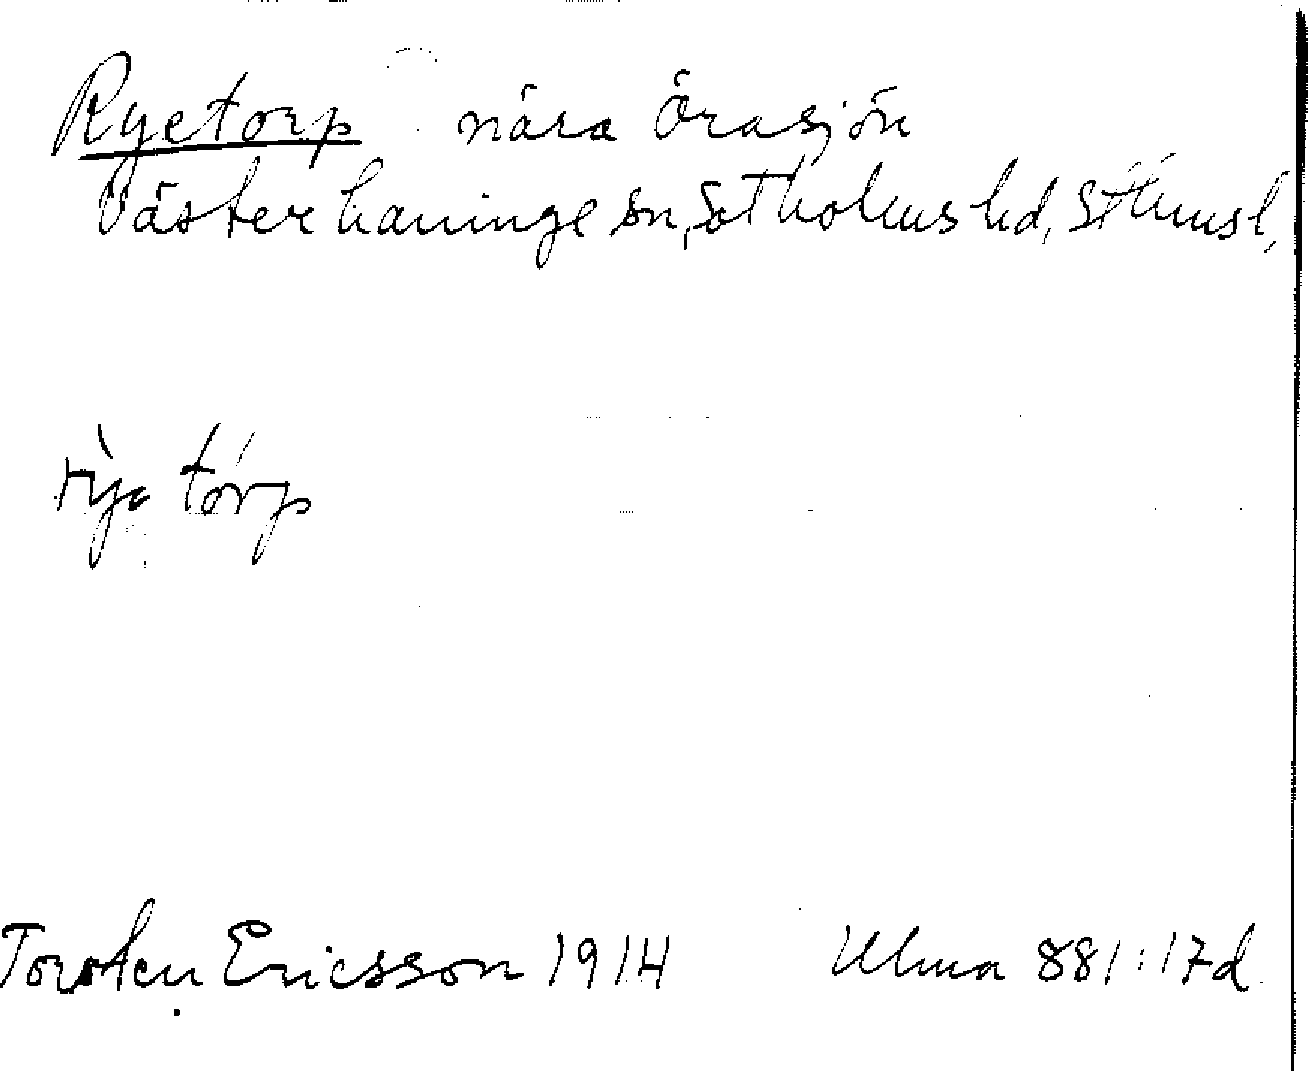 Ryetorp nära Örasjön
Västerhaninge sn, Sotholms hd, Sthmsl,
rỳe tórp
Torsten Ericsson 1914 Ulma 881:17d